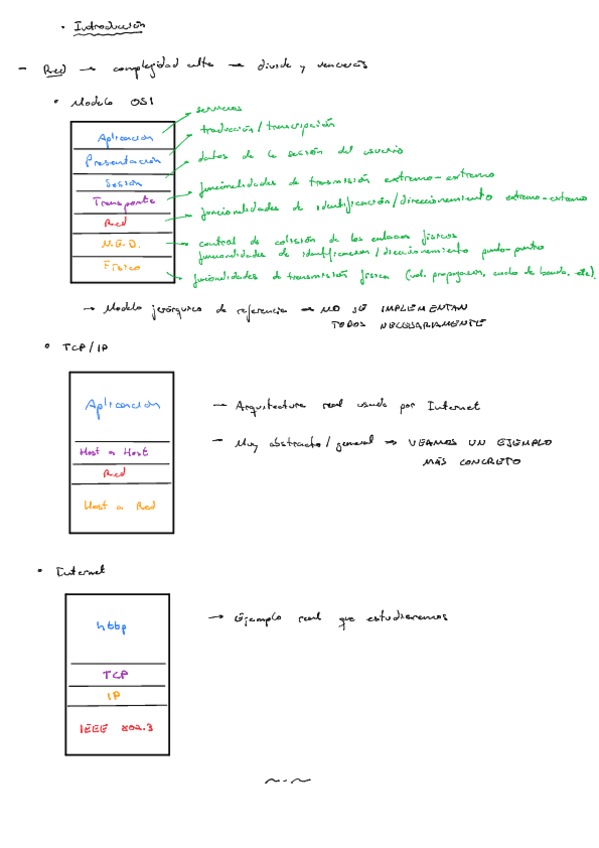 · Introducción
- Red → complejidad alta → divide y vencerás
• Modelo OSI
Aplicación
servicios
Presentación
traducción/transcripción
Sesión
datos de la sesión del usuario
Transporte
funcionalidades de transmisión extremo-extremo
Red
funcionalidades de identificación/direccionamiento extremo-extremo
N.E.D.
control de colisión de los enlaces físicos
funcionalidades de identificación/direccionamiento punto-punto
Físico
funcionalidades de transmisión física (vel. propagación, ancho de banda, etc).
→ Modelo jerárquico de referencia → NO SE IMPLEMENTAN
TODOS NECESARIAMENTE
• TCP/IP
Aplicación
Host a Host
Red
Host a Red
→ Arquitectura real usada por Internet
- Muy abstracto/general → VEAMOS UN EJEMPLO
MÁS CONCRETO
• Internet
http
TCP
IP
IEEE 802.3
→ Ejemplo real que estudiaremos